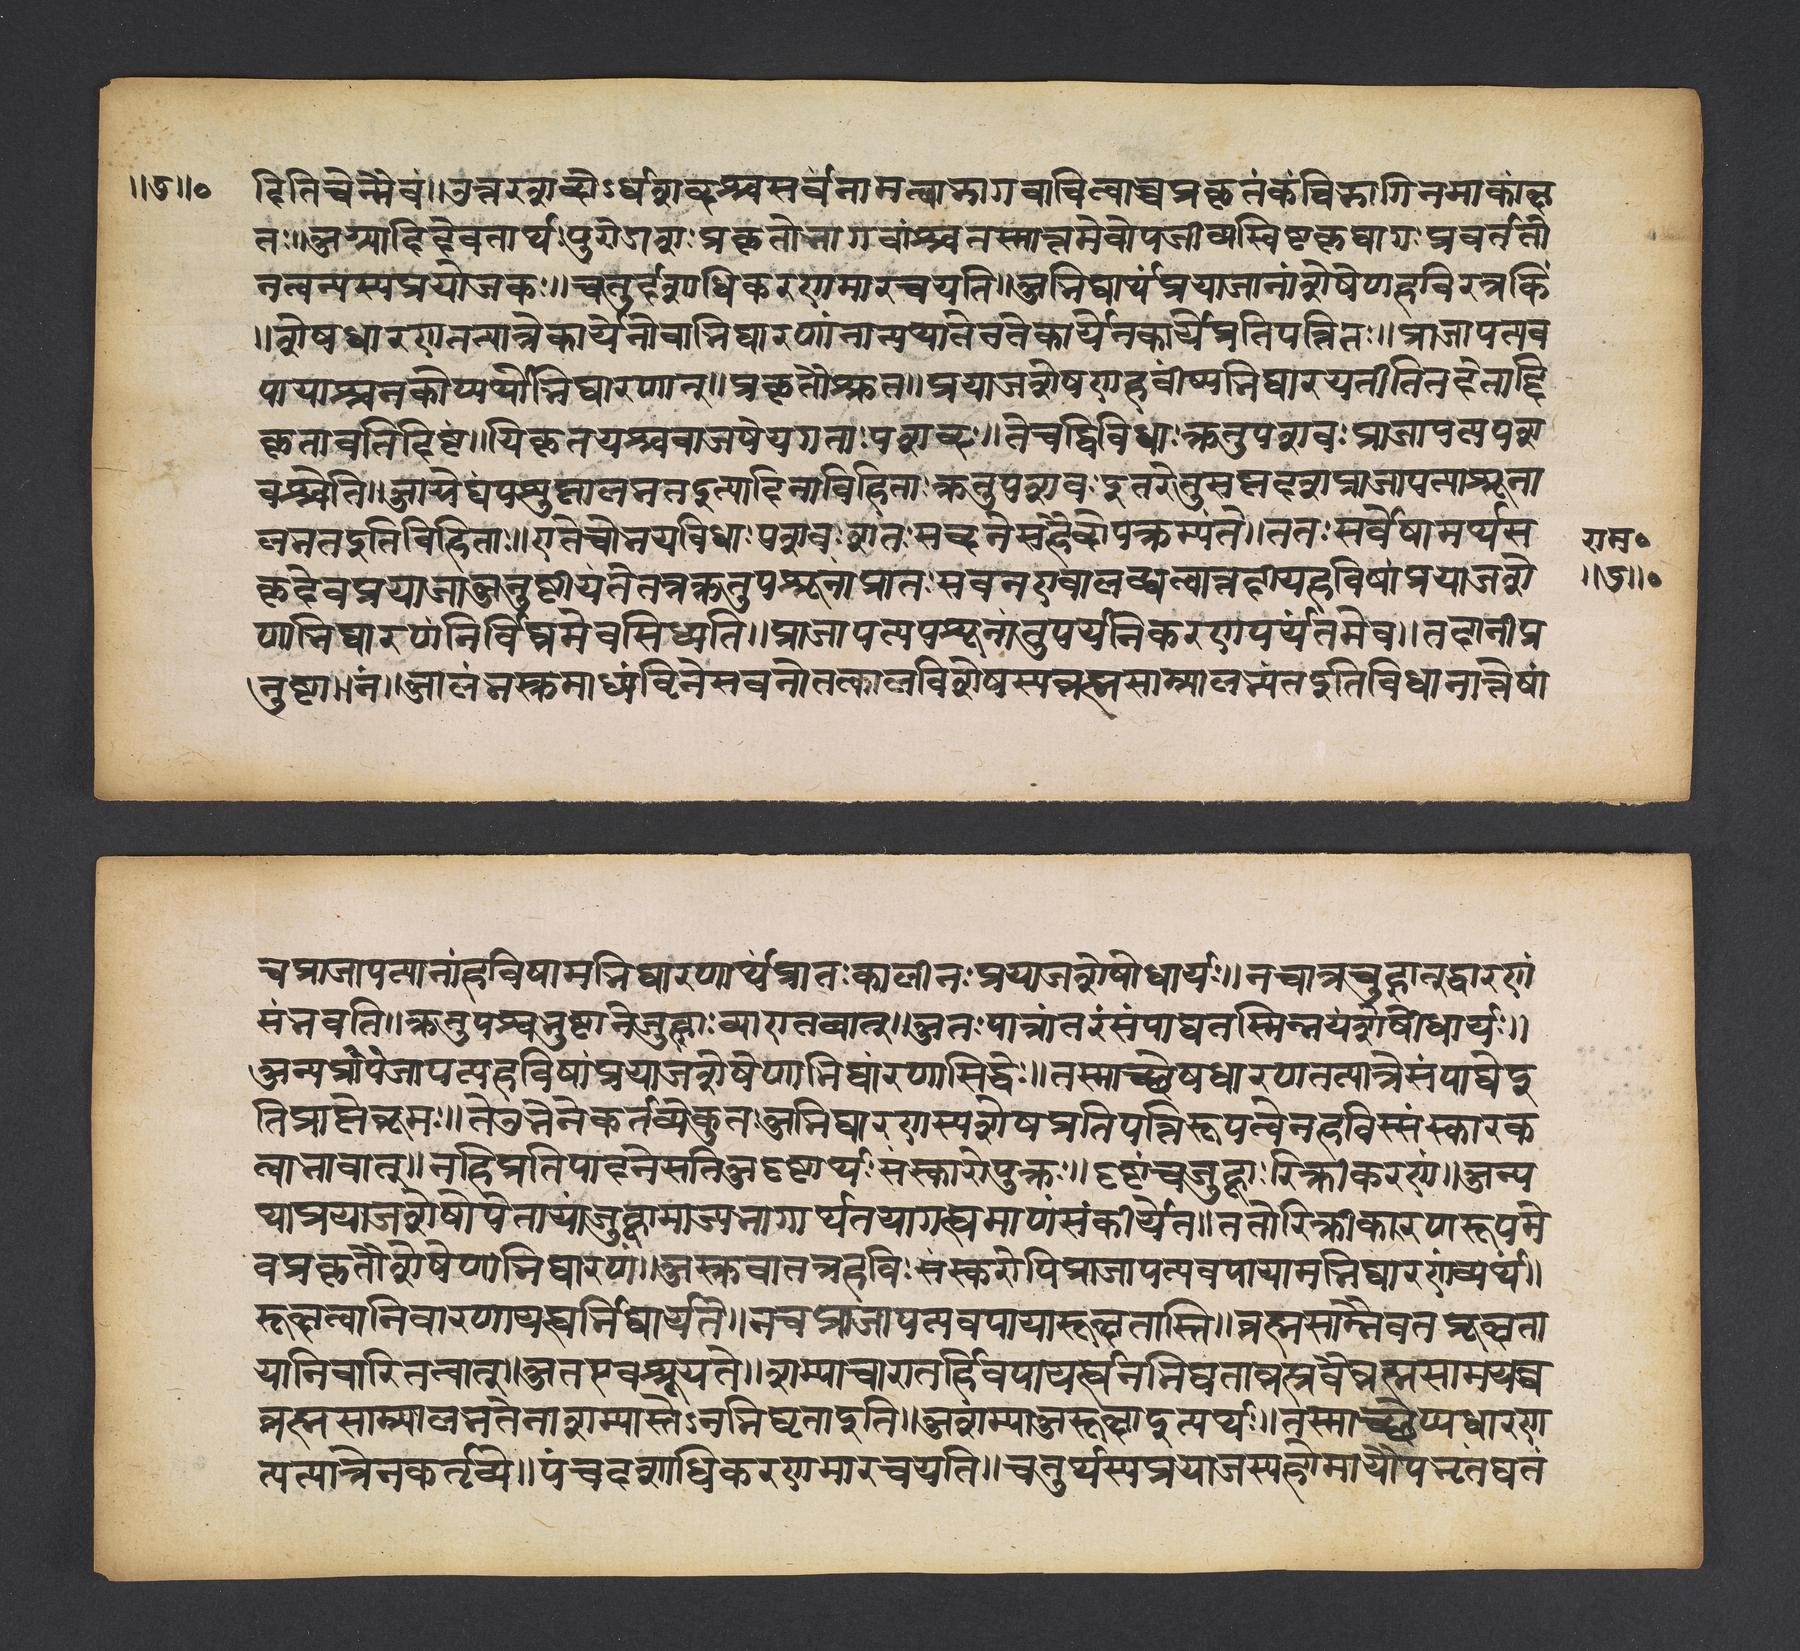 ॥७॥०
दितिचेन्मैवं॥उत्तरशब्दोऽर्धशब्दश्चसर्वनामत्वाद्भागवाचित्वाच्चप्रकृतंकंचिद्भागिनमाकांक्ष
तः॥अग्न्यादिदेवतार्थःपुरोडाशःप्रकृतोभागवांश्चतस्मात्तमेवोपजीव्यस्विष्टकृद्यागःप्रवर्तते
नत्वन्यस्यप्रयोजकः॥चतुर्दशाधिकरणमारचयति॥अभिघार्यंप्रयाजानांशेषेणहविरत्रकिं
॥शेषधारणतत्पात्रेकार्येनोवाभिघारणंनान्यथातेनतेकार्येनकार्येप्रतिपत्तितः॥प्राजापत्यव
पायाश्चनकोप्यर्थोभिघारणात्॥प्रकृतौश्रुत॥प्रयाजशेषेणहवींष्यभिघारयतीतितदेतद्वि
कृतावतिदिष्टं॥विकृतयश्चवाजपेयगताःपशवः॥तेचद्विविधाःक्रतुपशवःप्राजापत्यपश
वश्चेति॥आग्नेयंपशुमालभतइत्यादिनाविहिताःक्रतुपशवःइतरेतुसप्तदशप्राजापत्यान्पशूना
लभतइतिविहिताः॥एतेचोभयविधाःपशवःप्रातःसवनेसहैवोपक्रम्यंते॥ततःसर्वेषामर्थेस
राम०
कृदेवप्रयाजाअनुष्ठीयंतेतत्रक्रतुपशूनांप्रातःसवनएवालब्धत्वात्तदीयहविषांप्रयाजशे
॥७॥०
षेणाभिघारणंनिर्विघ्नमेवसिध्यति॥प्राजापत्यपशूनांतुपर्यग्निकरणपर्यंतमेव॥तदानीम
नुष्ठानं॥आलंभस्तुमाध्यंदिनेसवनेतत्कालविशेषस्यब्रह्मसाम्न्यालभ्यंतइतिविधानात्तेषां
चप्राजापत्यानांहविषामभिघारणार्थंप्रातःकालीनःप्रयाजशेषोधार्यः॥नचात्रचुह्वातद्धारणं
संभवति॥क्रतुपश्वनुष्ठानेजुह्वाःव्यापृतत्वात्॥अतःपात्रांतरंसंपाद्यतस्मिन्नयंशेषोधार्यः॥
अन्यप्राजापत्यहविषांप्रयाजशेषेणाभिघारणासिद्धेः॥तस्माच्छेषधारणतत्पात्रेसंपाद्येइ
तिप्राप्तेब्रूमः॥तेउभेनेकर्तव्येकुतःअभिघारणस्यशेषप्रतिपत्तिरूपत्वेनहविस्संस्कारक
त्वाभावात्॥नहिप्रतिपादनेसतिअदृष्टार्थःसंस्कारोयुक्तः॥दृष्टंचजुह्वाःरिक्तीकरणं॥अन्य
थाप्रयाजशेषोपेतायांजुह्वामाज्यभागार्थतयागृह्यमाणंसंकीर्येत॥ततोरिक्तीकारणरूपमे
वप्रकृतौशेषेणाभिघारणं॥अस्तुवातत्रहविःसंस्करोपिप्राजापत्यवपायामभिघारणंव्यर्थं॥
रूक्षत्वानिवारणायह्यभिघार्यते॥नचप्राजापत्यवपायारूक्षतास्ति॥ब्रह्मसाम्नैवतद्रूक्षता
यानिवारितत्वात्॥अतएवश्रूयते॥शम्यावाएतर्हिवपायर्ह्यनभिघृताब्रह्मवैब्रह्मसामयद्ब्र
ह्मसाम्न्यालभततेनाशम्यास्तेऽनभिघृताइति॥अशम्याअरूक्षाइत्यर्थः॥तस्माच्छेष्यधारण
त्यत्पात्रेनकर्तव्ये॥पंचदशाधिकरणमारचयति॥चतुर्थस्यप्रयाजस्यहोमायौपभृतंघृतं